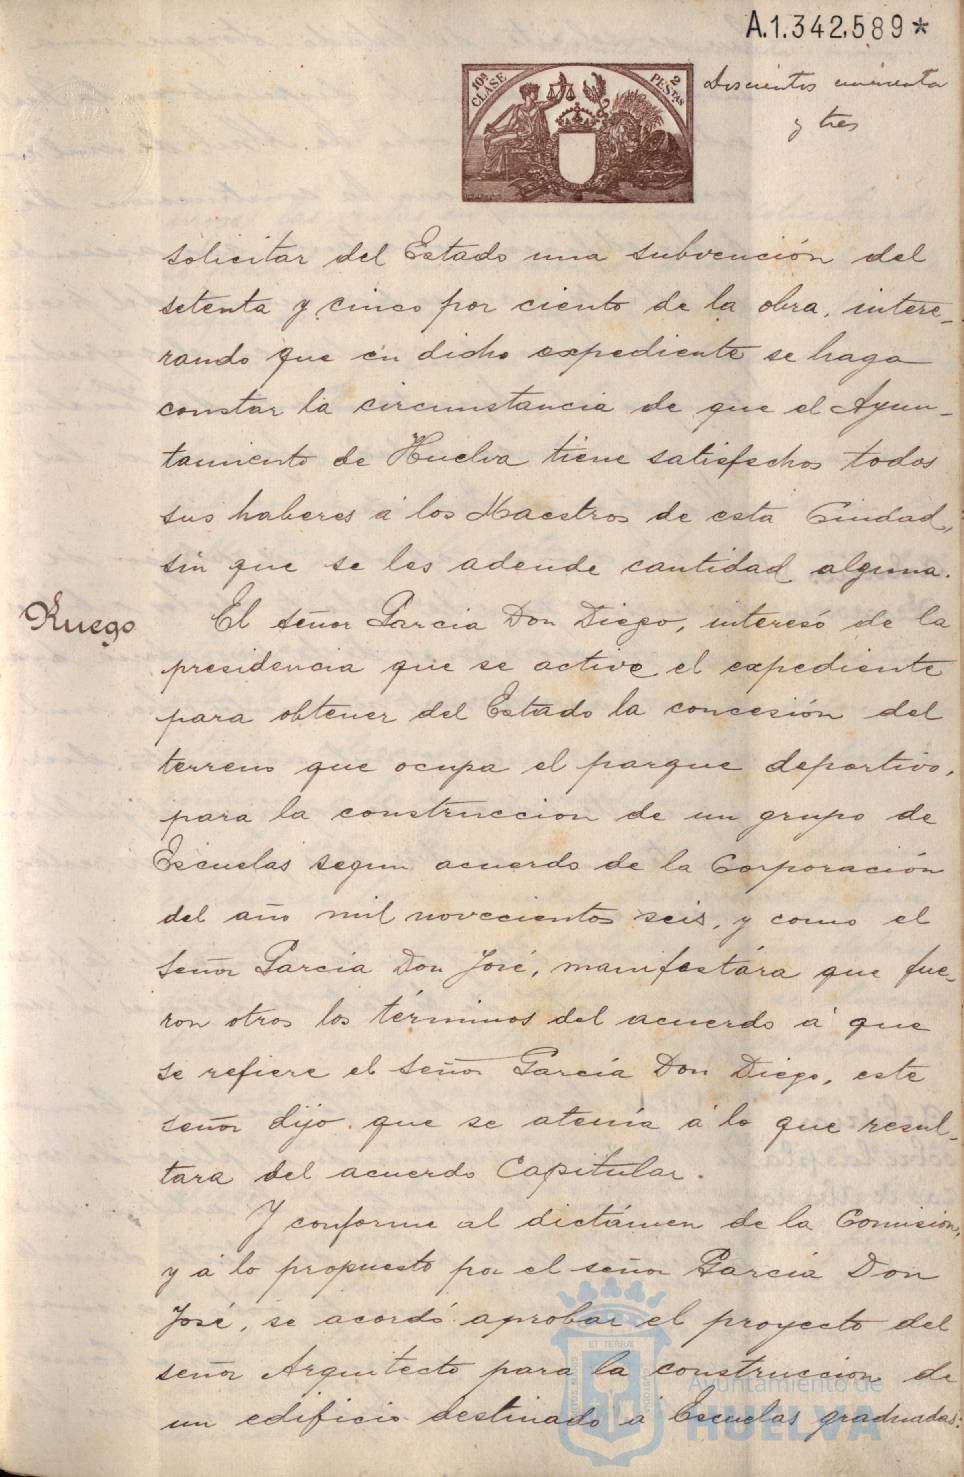 A.1.342,589*
10ª CLASE
2 PESTAS
Doscientos cincuenta
y tres
solicitar del Estado una subvención del
setenta y cinco por ciento de la obra, intere-
rando que en dicho expediente se haga
constar la circunstancia de que el Ayun-
tamiento de Huelva tiene satisfechos todos
sus haberes á los Maestros de esta Ciudad,
sin que se les adeude cantidad alguna.
Ruego
El señor Garcia Don Diego, interesó de la
presidencia que se active el expediente
para obtener del Estado la concesión del
terreno que ocupa el parque deportivo,
para la construccion de un grupo de
Escuelas segun acuerdo de la Corporación
del año mil novecientos seis, y como el
señor Garcia Don José, manifestára que fue-
ron otros los términos del acuerdo á que
se refiere el señor García Don Diego, este
señor dijo que se atenía á lo que resul-
tara del acuerdo Capitular.
Y conforme al dictámen de la Comisión,
y á lo propuesto por el señor Garcia Don
José, se acordó aprobar el proyecto del
señor Arquitecto para la construccion de
un edificio destinado á Escuelas graduadas:
Ayuntamiento de
HUELVA